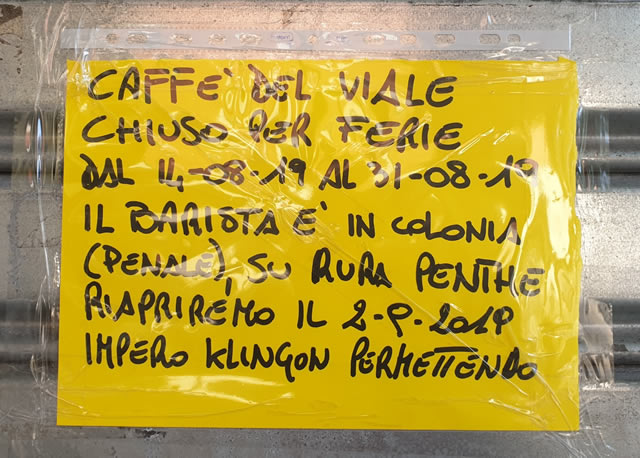 CAFFE' DEL VIALE
CHIUSO PER FERIE
DAL 14-08-19 AL 31-08-19
IL BARISTA E' IN COLONIA
(PENALE) SU RURA PENTHE
RIAPRIREMO IL 2-9-2019
IMPERO KLINGON PERMETTENDO